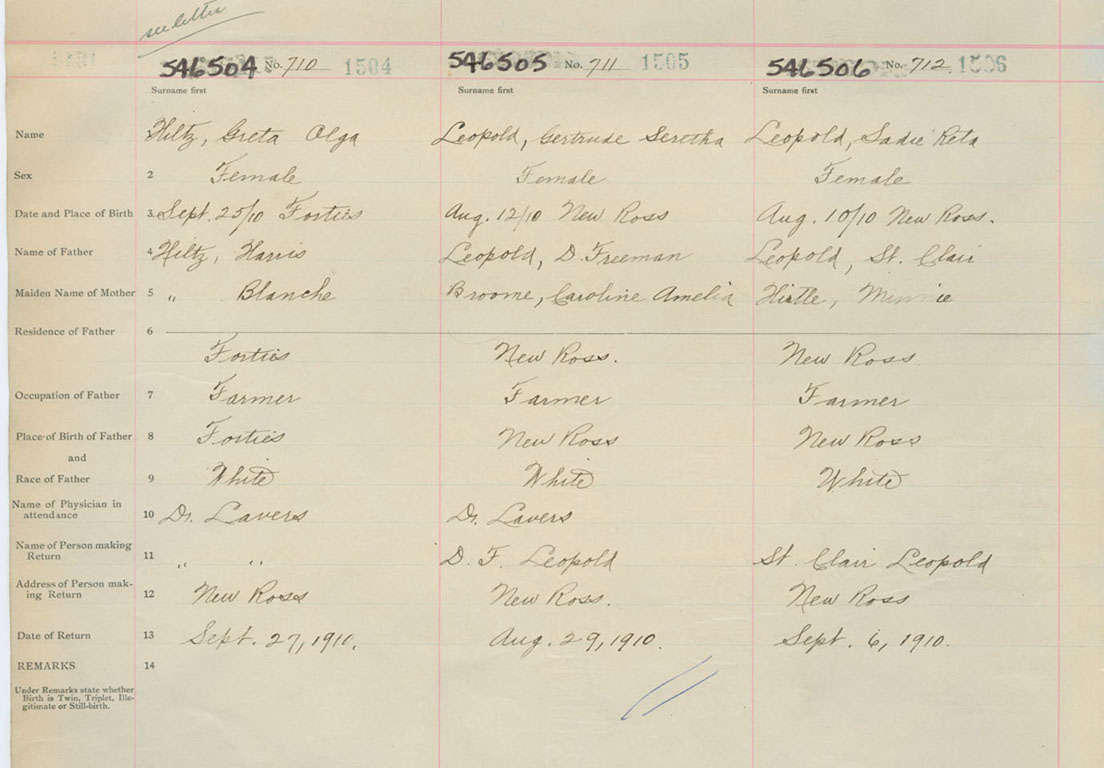 see letter
546504 No. 710 1504 546505 No. 711 1505 546506 No. 712 1506
Surname first Surname first Surname first
Name Hiltz, Greta Olga Leopold, Gertrude Seretha Leopold, Sadie Reta
Sex 2 Female Female Female
Date and Place of Birth 3 Sept. 25/10 Forties Aug. 12/10 New Ross Aug. 10/10 New Ross.
Name of Father 4 Hiltz, Harris Leopold, D. Freeman Leopold, St. Clair
Maiden Name of Mother 5 " Blanche Broome, Caroline Amelia Hirtle, Minnie
Residence of Father 6
Forties New Ross. New Ross
Occupation of Father 7 Farmer Farmer Farmer
Place of Birth of Father 8 Forties New Ross New Ross
and
Race of Father 9 White White White
Name of Physician in
attendance 10 Dr. Lavers Dr. Lavers
Name of Person making
Return 11 " " D. F. Leopold St. Clair Leopold
Address of Person mak-
ing Return 12 New Ross New Ross. New Ross
Date of Return 13 Sept. 27, 1910. Aug. 29, 1910. Sept. 6, 1910.
REMARKS 14
Under Remarks state whether
Birth is Twin, Triplet, Ille-
gitimate or Still-birth.